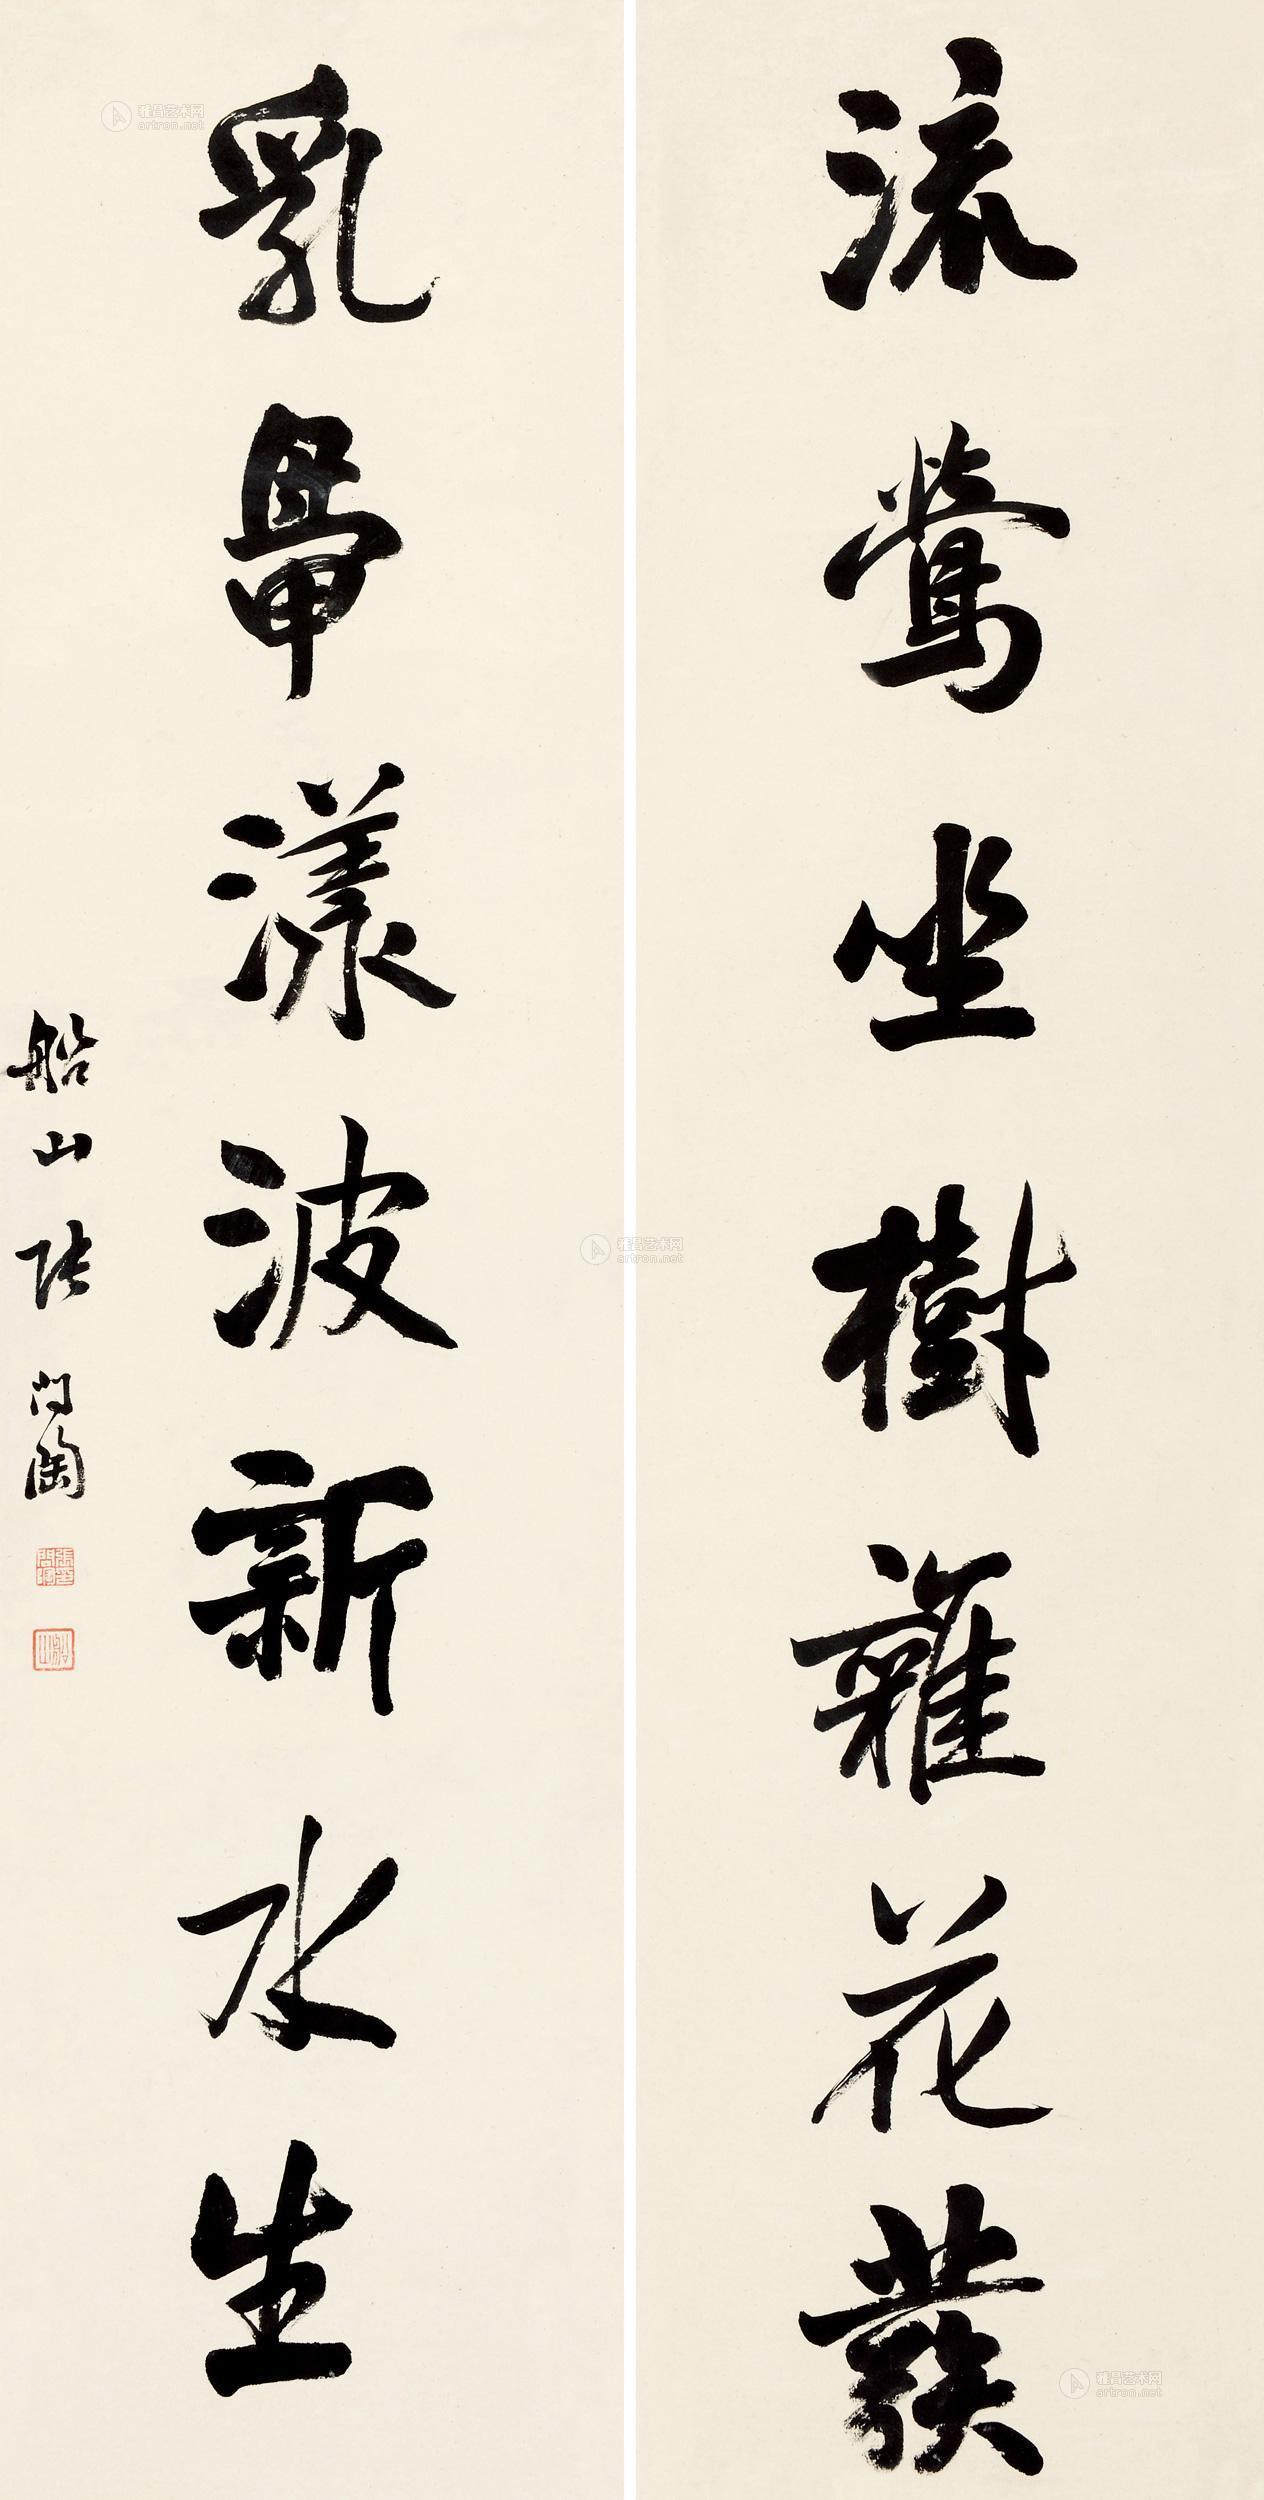 流鶯坐樹雜花發
乳鳧漾波新水生
船山張問陶
張問陶
船山
雅昌艺术网
artron.net
雅昌艺术网
artron.net
雅昌艺术网
artron.net